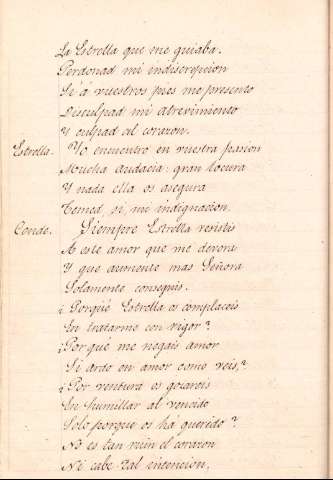 La Estrella que me guiaba.
Perdonad mi indiscrecion
Si á vuestros pies me presento
Disculpad mi atrevimiento
Y culpad al corazon.
Estrella. Yo encuentro en vuestra pasion
Mucha audacia: gran locura
Y nada ella os asegura
Temed, si, mi indignacion.
Conde. Siempre Estrella resistis
A este amor que me devora
Y que aumente mas Señora
Solamente conseguis.
¿Porqué Estrella os complaceis
En tratarme con rigor?
¿Por qué me negais amor
Si ardo en amor como veis,?
¿Por ventura os gozareis
En humillar al vencido
Solo porque os há querido?
No es tan ruin el corazon
Ni cabe tal intencion,